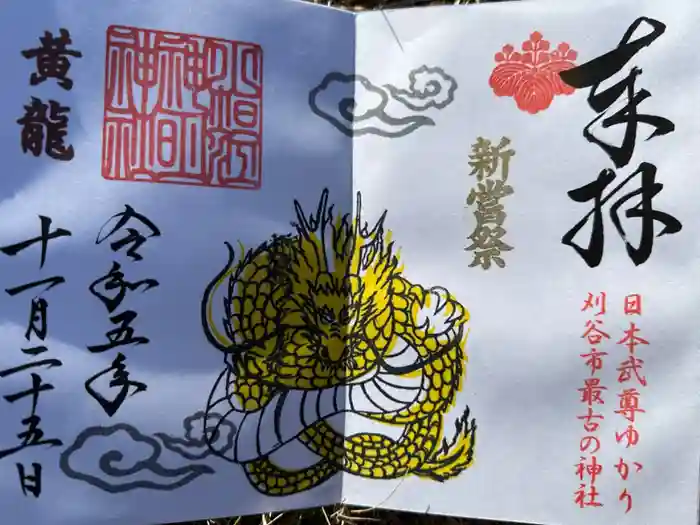 奉拝
日本武尊ゆかり
刈谷市最古の神社
新嘗祭
令和五年
十一月二十五日
黄龍